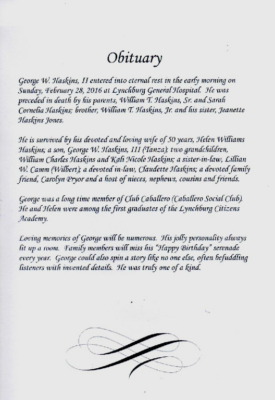 Obituary
George W. Haskins, II entered into eternal rest in the early morning on
Sunday, February 28, 2016 at Lynchburg General Hospital. He was
preceded in death by his parents, William T. Haskins, Sr. and Sarah
Cornelia Haskins; brother, William T. Haskins, Jr. and his sister, Jeanette
Haskins Jones.
He is survived by his devoted and loving wife of 50 years, Helen Williams
Haskins; a son, George W. Haskins, III (Tanza); two grandchildren,
William Charles Haskins and Kali Nicole Haskins; a sister-in-law, Lillian
W. Cann (Wilbert); a devoted in-law, Claudette Haskins; a devoted family
friend, Carolyn Pryor and a host of nieces, nephews, cousins and friends.
George was a long time member of Club Caballero (Caballero Social Club).
He and Helen were among the first graduates of the Lynchburg Citizens
Academy.
Loving memories of George will be numerous. His jolly personality always
lit up a room. Family members will miss his "Happy Birthday" serenade
every year. George could also spin a story like no one else, often befuddling
listeners with invented details. He was truly one of a kind.